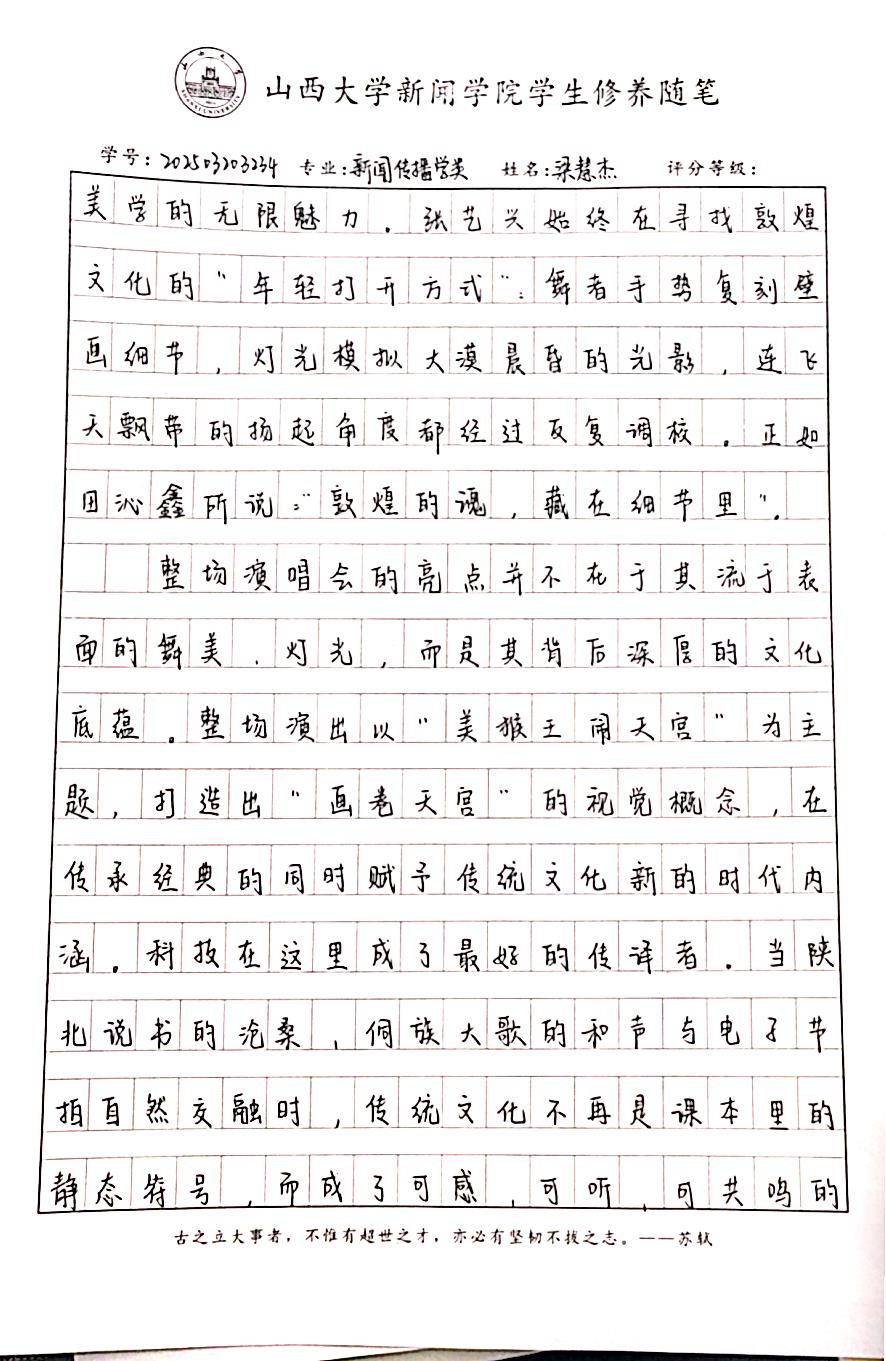 山西大学新闻学院学生修养随笔
学号：202503203234 专业：新闻传播学类 姓名：梁慧杰 评分等级：
美学的无限魅力。张艺兴始终在寻找敦煌
文化的“年轻打开方式”：舞者手势复刻壁
画细节，灯光模拟大漠晨昏的光影，连飞
天飘带的扬起角度都经过反复调校。正如
田沁鑫所说：“敦煌的魂，藏在细节里”。
整场演唱会的亮点并不在于其流于表
面的舞美、灯光，而是其背后深厚的文化
底蕴。整场演出以“美猴王闹天宫”为主
题，打造出“画卷天宫”的视觉概念，在
传承经典的同时赋予传统文化新的时代内
涵。科技在这里成了最好的传译者。当陕
北说书的沧桑，侗族大歌的和声与电子节
拍自然交融时，传统文化不再是课本里的
静态符号，而成了可感，可听，可共鸣的
古之立大事者，不惟有超世之才，亦必有坚韧不拔之志。——苏轼